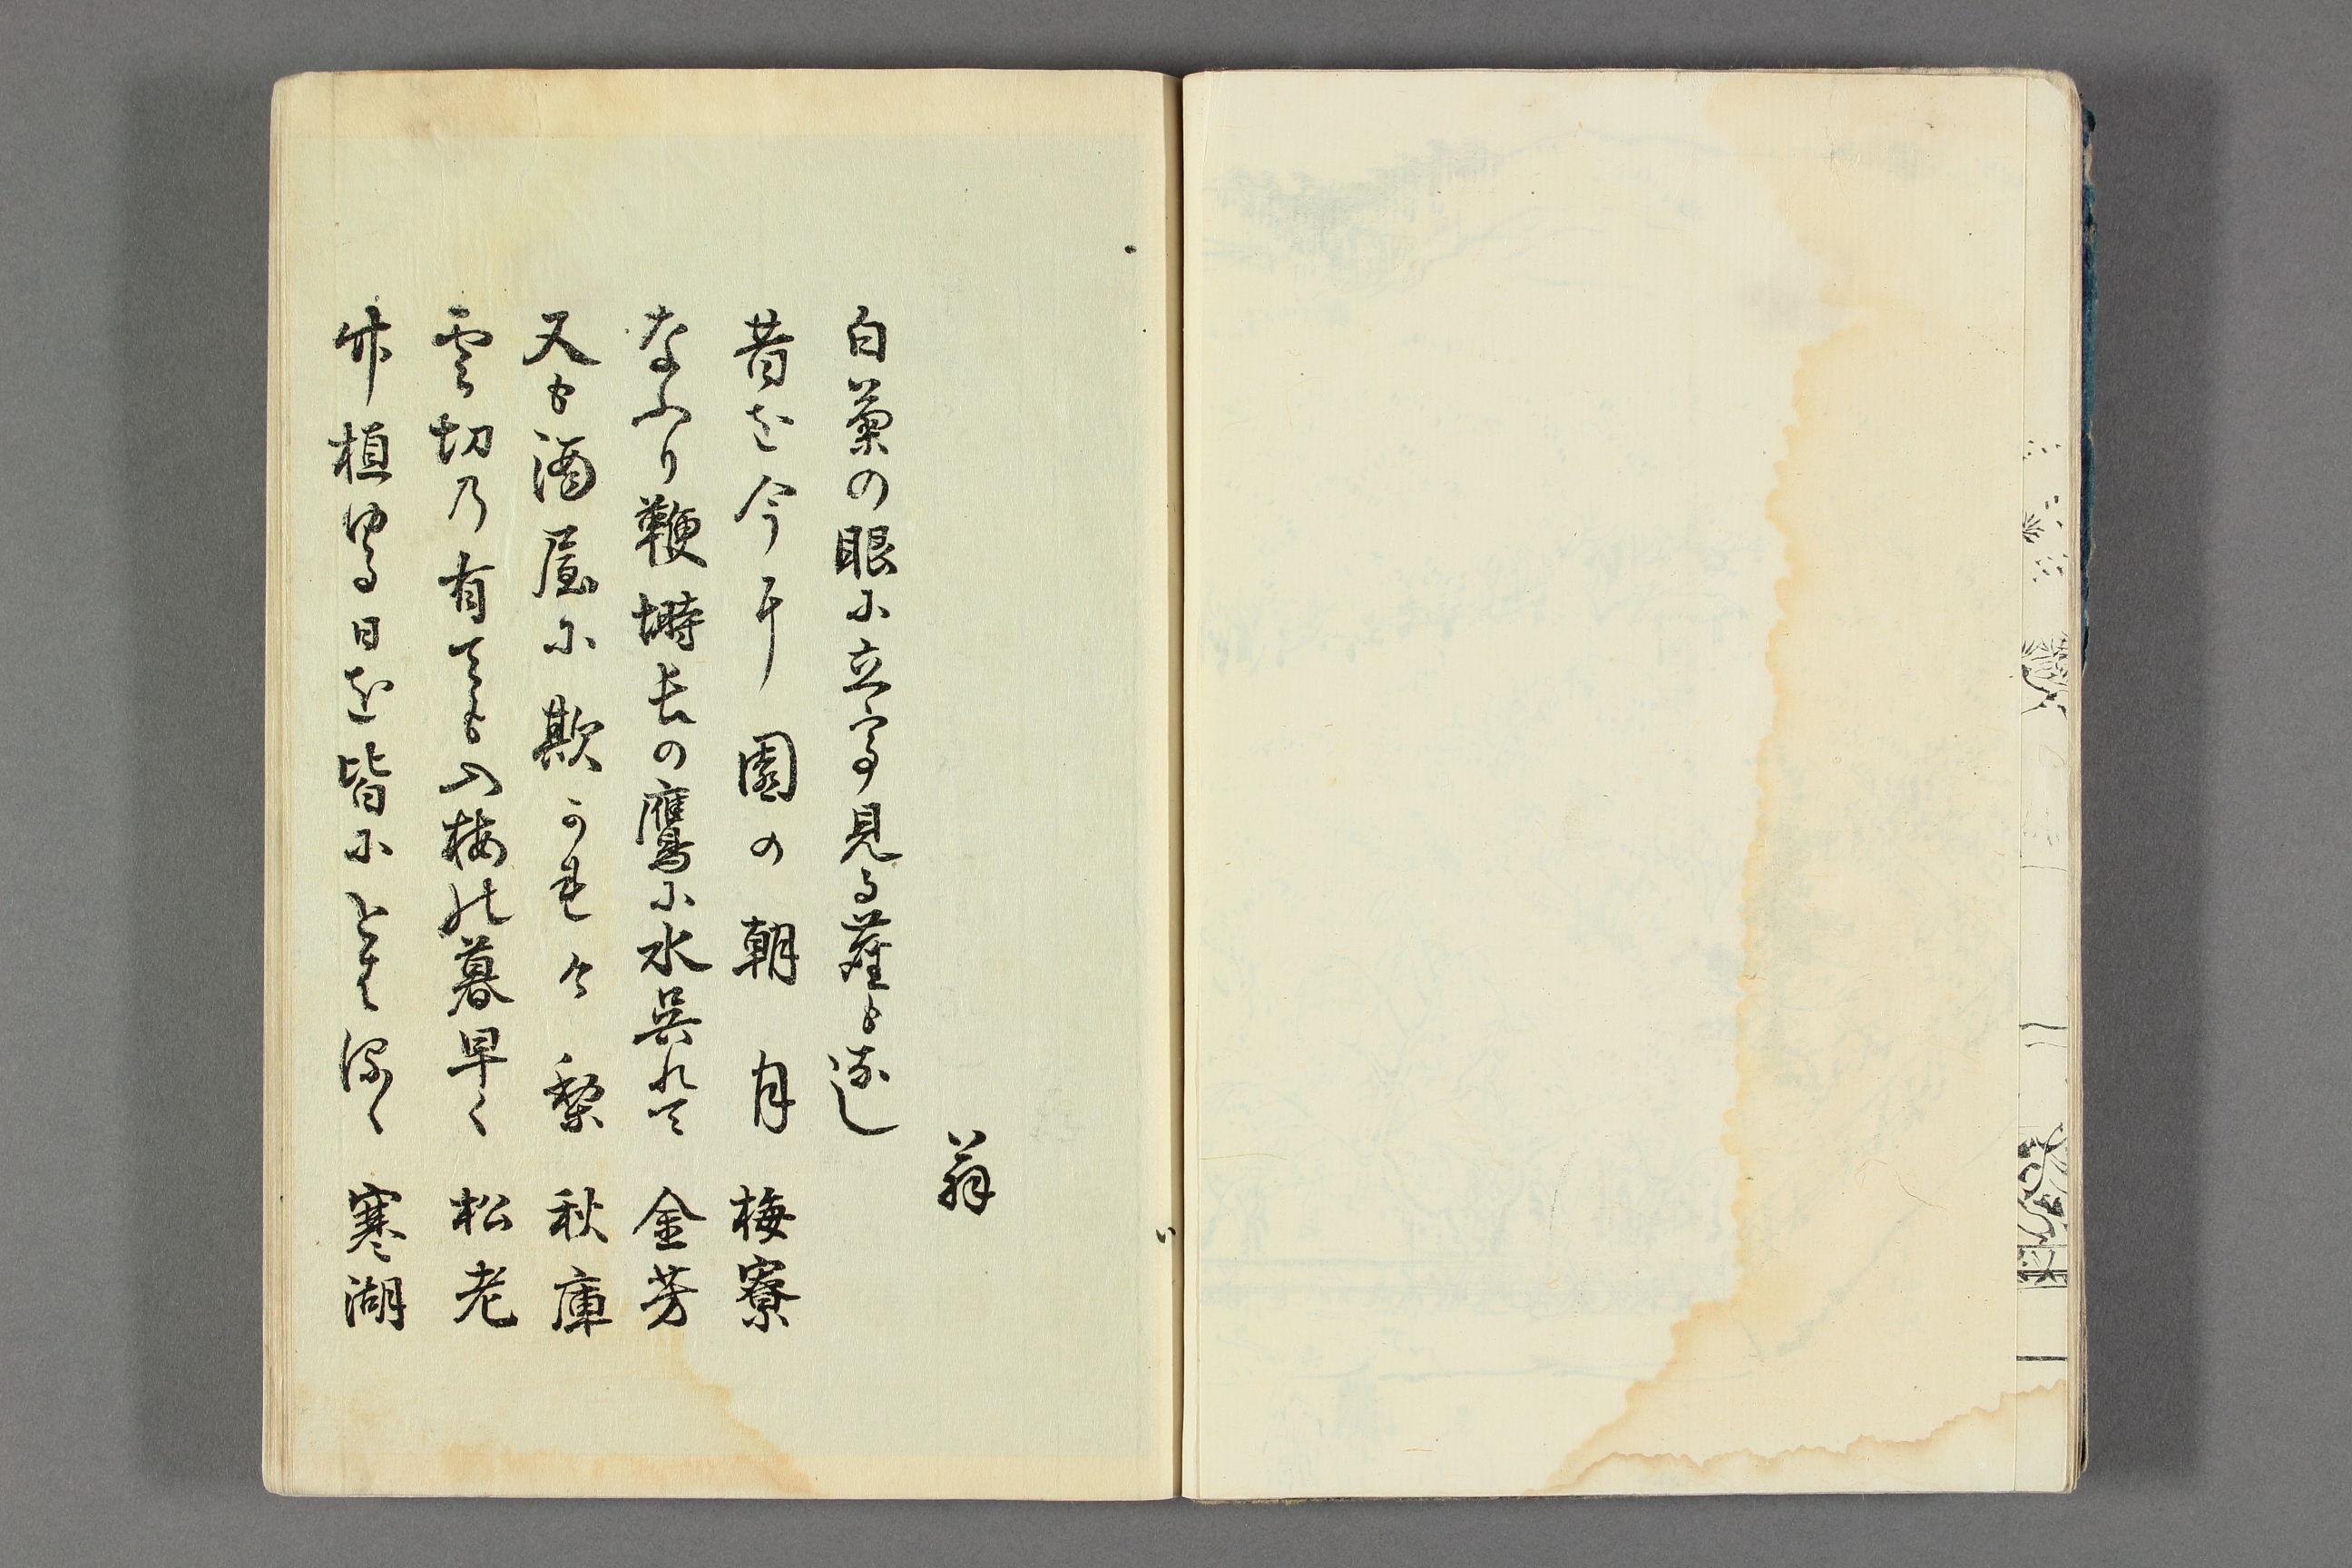 翁
白菊の眼に立て見る塵も無し
昔を今に 園の朝月 梅寮
なふり鞭塒長の鷹に水呉れて 金芳
又も酒屋に欺かれけり 秋庫
雲切乃有ても入梅の暮早く 松老
竹植る日を皆にとはて深く 寒湖